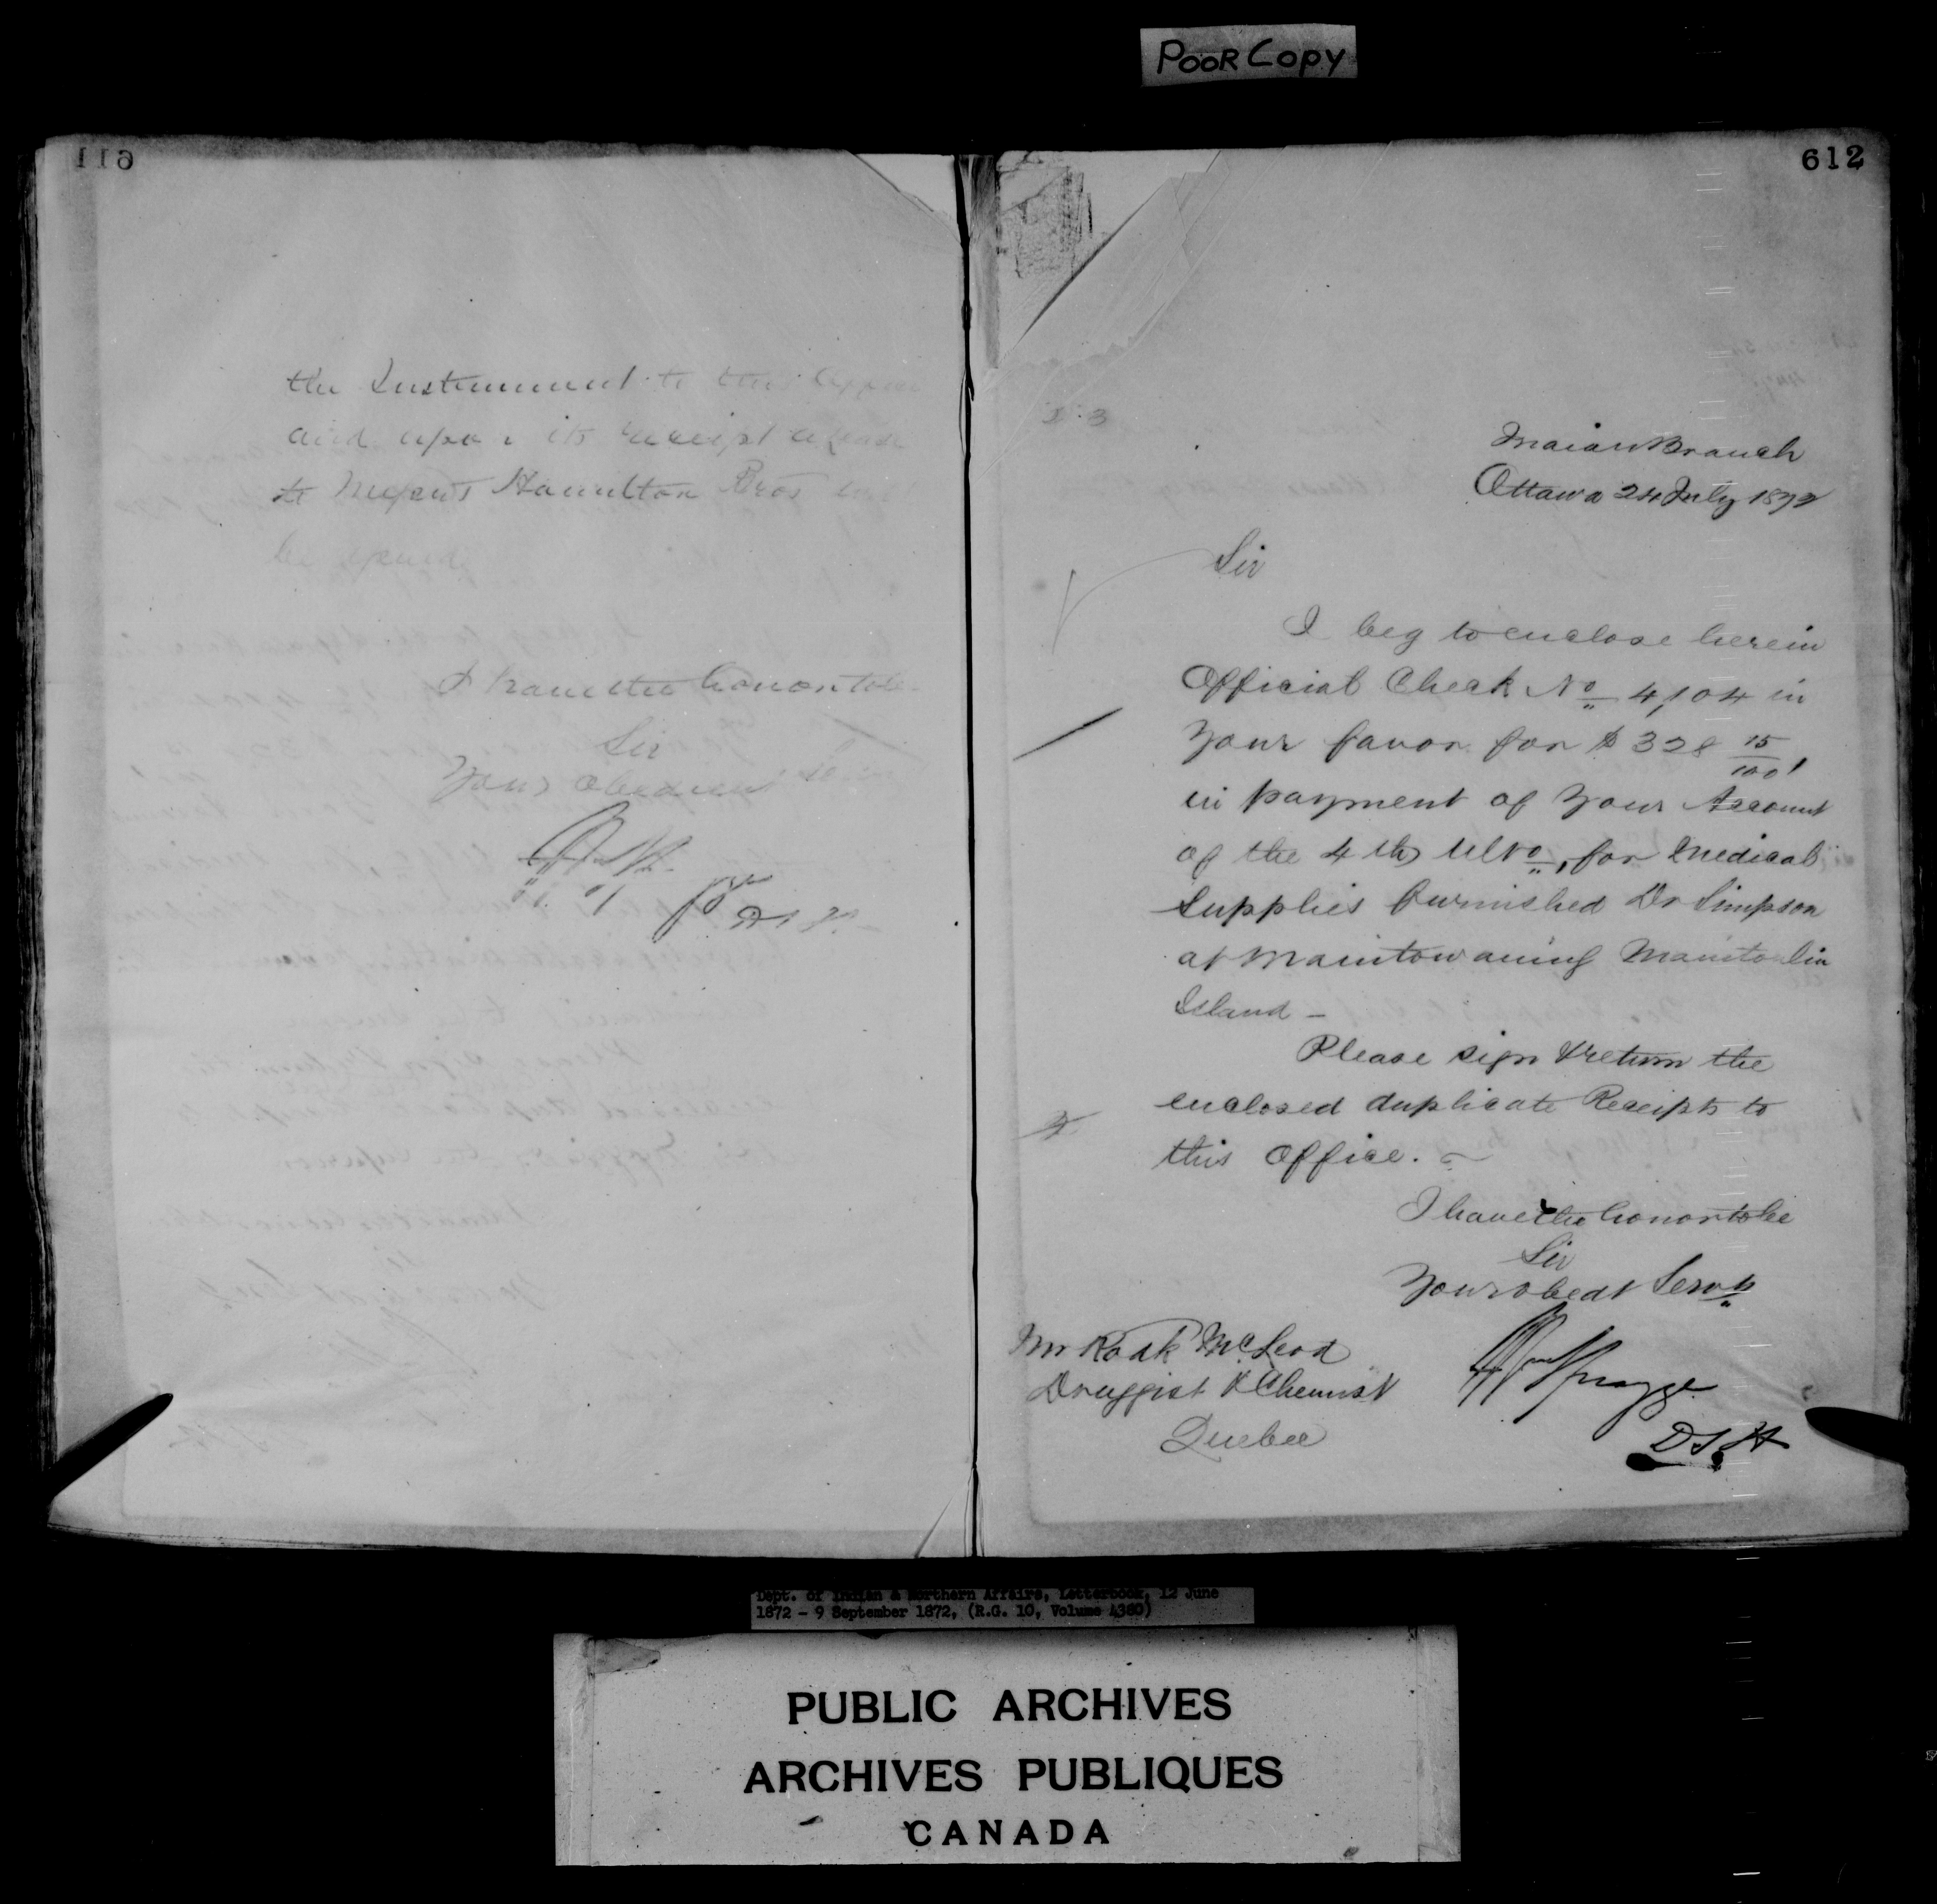 POOR COPY
611
the Instrument to this
and upon its receipt
to Messrs Hamilton Bros
be
I have the honor to be
Sir
Your Obedient
612
Indian Branch
Ottawa 24 July 1872
Sir
I beg to enclose herein
Official Check No 4,104 in
Your favor for $328 15/100,
in payment of Your Account
of the 4th Ulto, for Medical
Supplies furnished Dr Simpson
at Manitowaning Manitoulin
Island –
Please sign & return the
enclosed duplicate Receipts to
this Office. –
I have the honor to be
Sir
Your obedt Servt
Mr Rodk McLeod
Druggist & Chemist
Quebec
Spragge
Dept. of Indian & Northern Affairs, Letterbook, 12 June
1872 - 9 September 1872, (R.G. 10, Volume 4380)
PUBLIC ARCHIVES
ARCHIVES PUBLIQUES
CANADA